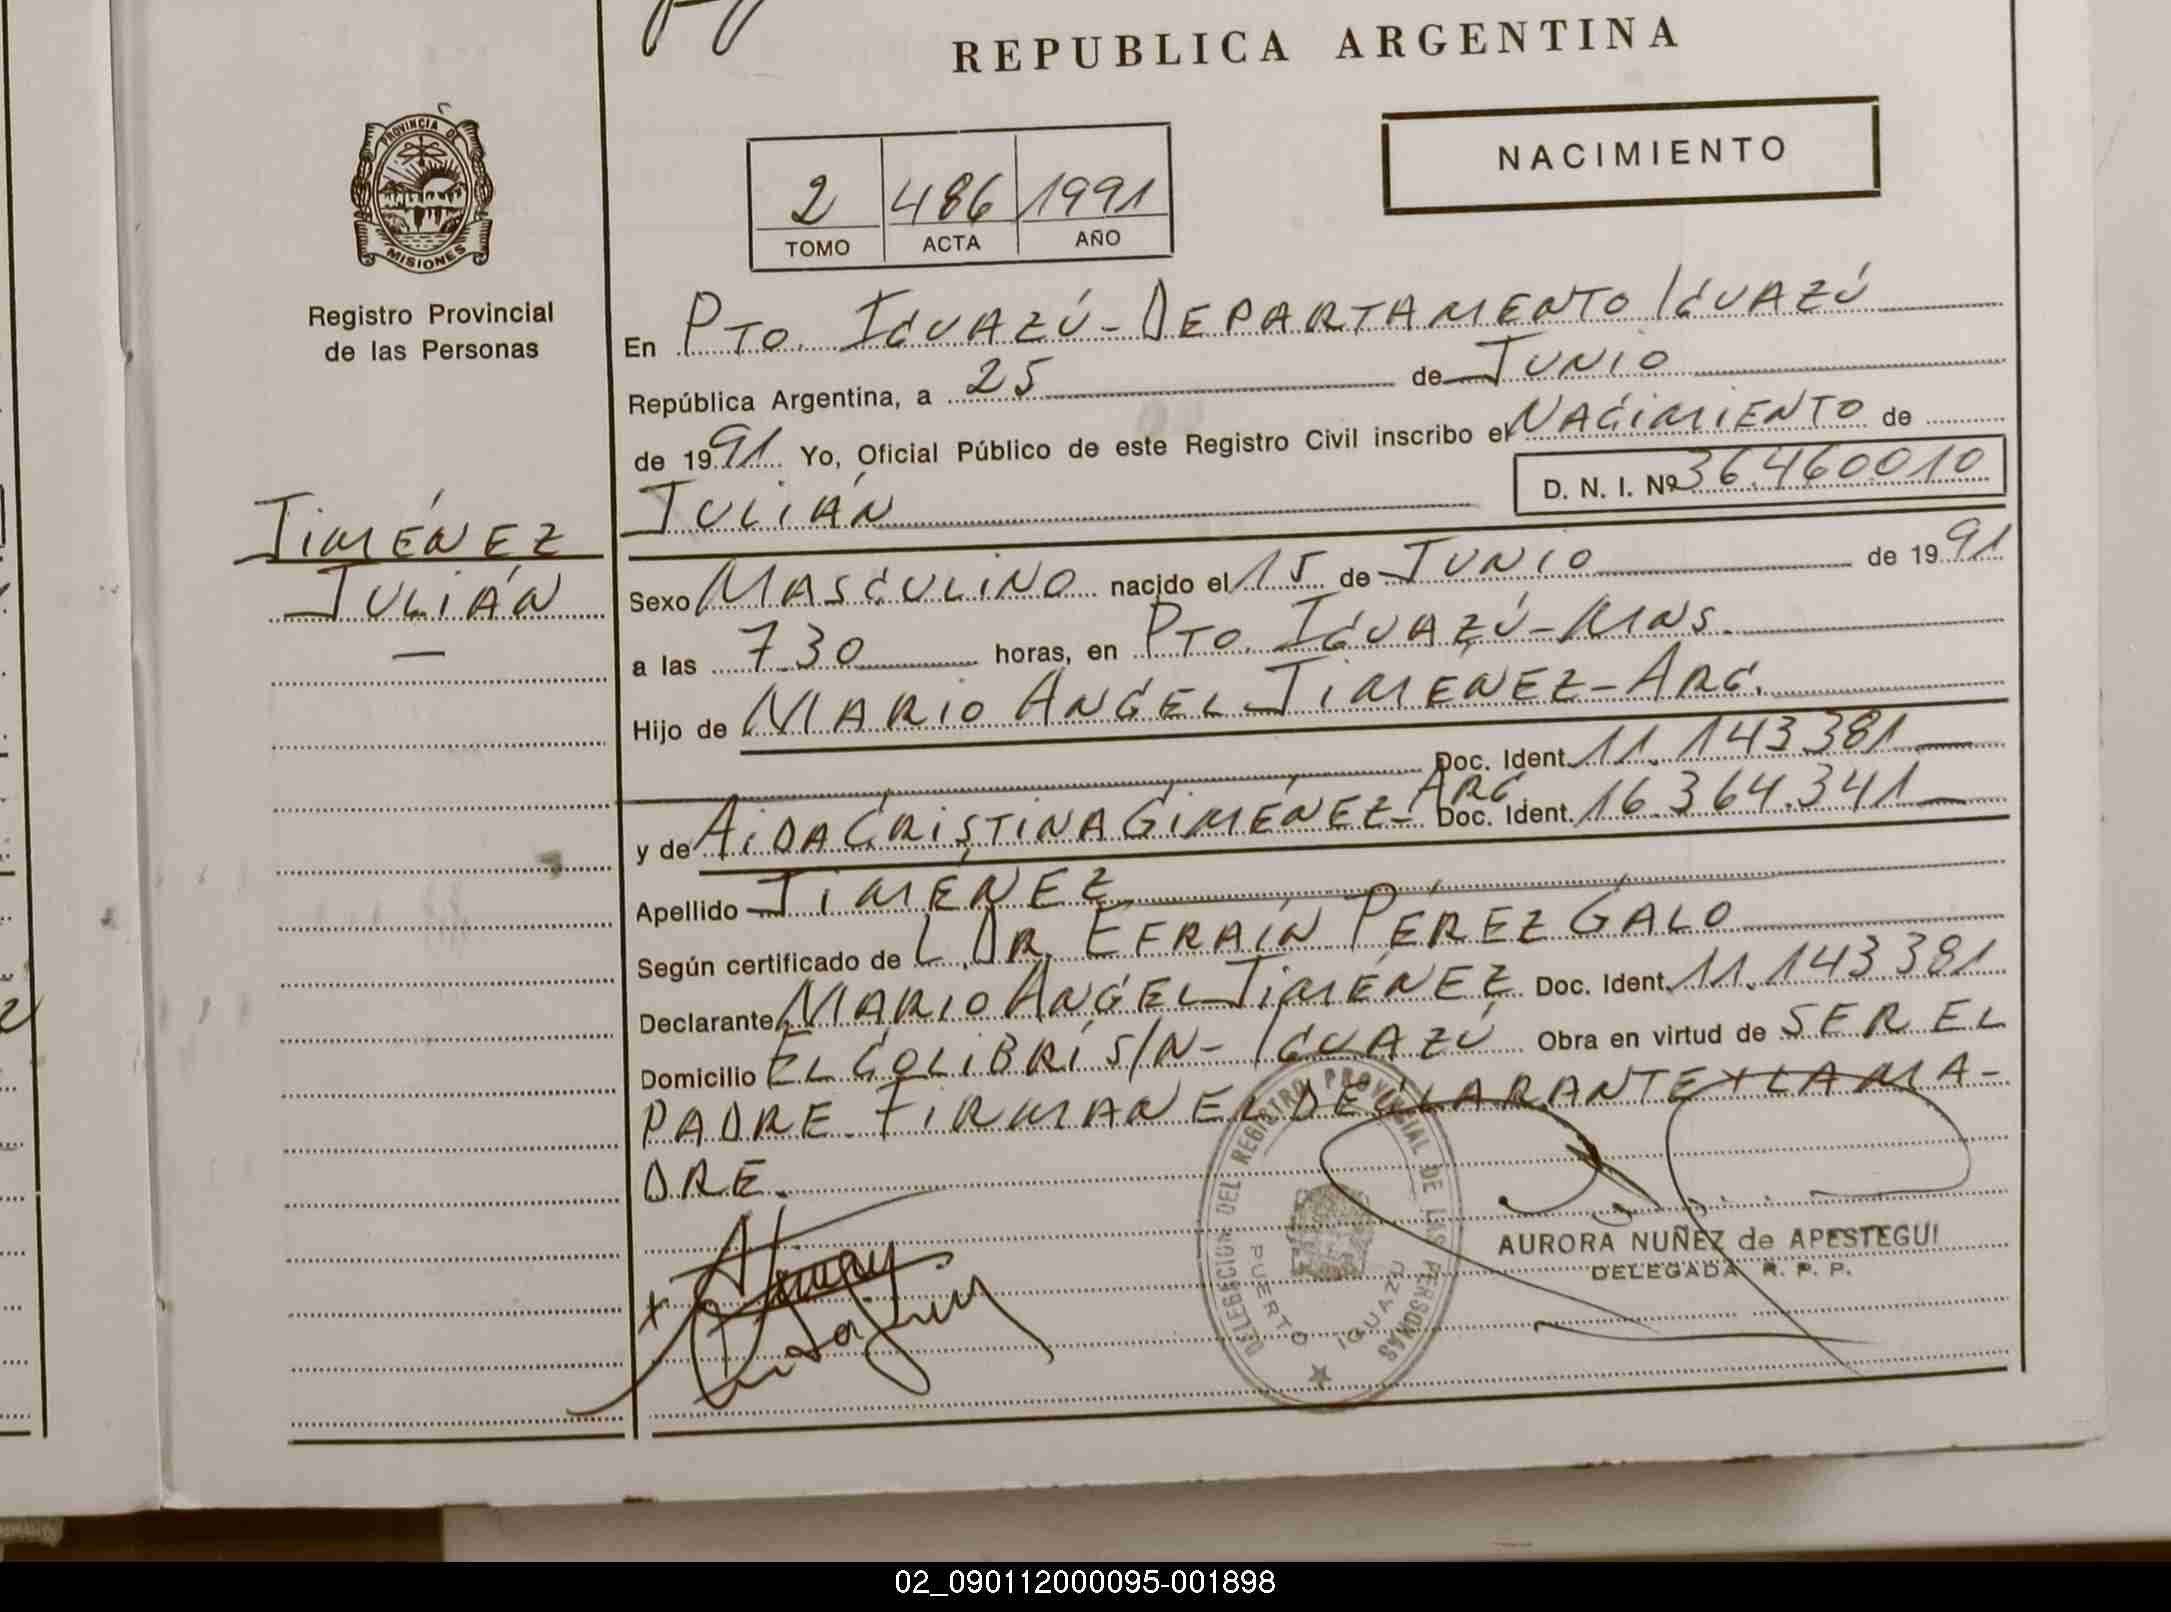 REPUBLICA ARGENTINA
PROVINCIA DE
MISIONES
Registro Provincial
de las Personas
NACIMIENTO
2 486 1991
TOMO ACTA AÑO
En PTO. IGUAZÚ - DEPARTAMENTO IGUAZÚ
República Argentina, a 25 de JUNIO
de 1991 Yo, Oficial Público de este Registro Civil inscribo el NACIMIENTO de
JULIÁN D. N. I. Nº 36.460010
JIMÉNEZ
JULIÁN
—
Sexo MASCULINO nacido el 15 de JUNIO de 1991
a las 7.30 horas, en PTO. IGUAZÚ - MNS.
Hijo de MARIO ANGEL JIMÉNEZ - ARG.
Doc. Ident. 11.143.381 —
y de AIDA CRISTINA GIMÉNEZ - ARG. Doc. Ident. 16.364.341 —
Apellido JIMÉNEZ
Según certificado de L. DR. EFRAÍN PÉREZ GALO
Declarante MARIO ANGEL JIMÉNEZ Doc. Ident. 11.143.381
Domicilio EL COLIBRÍ S/N - IGUAZÚ Obra en virtud de SER EL
PADRE. FIRMAN EL DECLARANTE Y LA MA-
DRE.
DELEGACION DEL REGISTRO PROVINCIAL DE LAS PERSONAS
PUERTO IGUAZU
AURORA NUÑEZ de APESTEGUI
DELEGADA R. P. P.
02_090112000095-001898